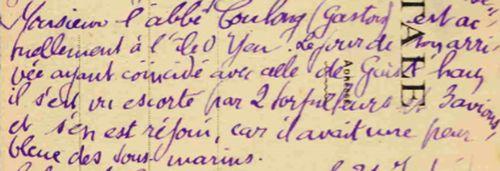 Monsieur l'abbé Coulong (Gaston) est ac
tuellement à l'île d'Yeu. Le jour de son arri
vée ayant coïncidé avec celle de Guist'hau,
il s'est vu escorté par 2 torpilleurs et 3 avions,
et s'en est réjoui, car il avait une peur
bleue des sous-marins.
TALE